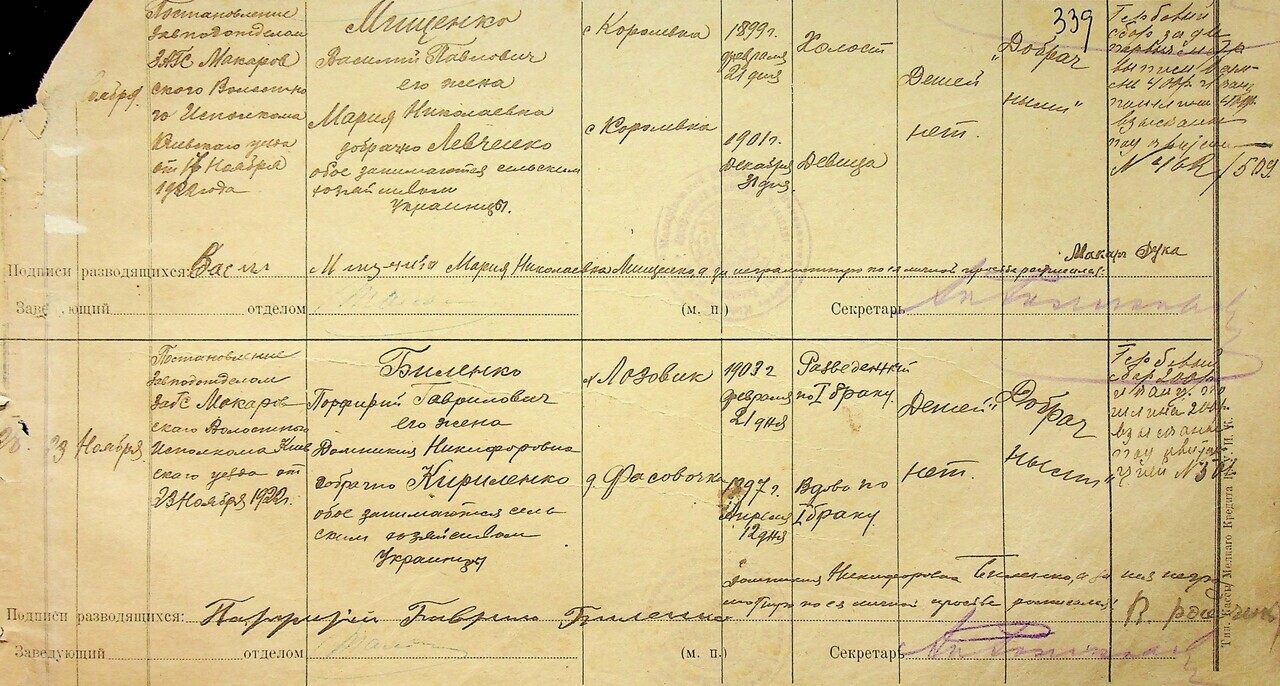 339
Ноября
Постановление
Завподотделом
ЗАГС Макаров
ского Волостно
го Исполкома
Киевского уезда
от 17 Ноября
1922 года
Мищенко
Василий Павлович
его жена
Мария Николаевна
добрачно Левченко
обое занимаются сельским
хозяйством
Украинцы.
с Королевка
с Королевка
1899 г.
февраля
21 дня
1901 г.
Декабря
31 дня
Холост
Девица
Детей
нет.
"Добрач
ным"
Гербовый
сбор
взыскано
по
N
509
Макар Зука
Подписи разводящихся: Васил Мария Николаевна Мищенко, а за неграмотную по ея личной просьбе росписался:
Заведующий отделом (м. п.) Секретарь
23 Ноября
Постановление
Завподотделом
ЗАГС Макаров
скаго Волостного
Исполкома Киев
ского уезда от
23 Ноября 1922 г.
Биленко
Порфирий Гаврилович
его жена
Домникия Никифоровна
добрачно Кириленко
обое занимаются сель
ским хозяйством
Украинцы
с Лозовик
д. Фасовочка
1903 г
февраля
21 дня
1897 г.
Апреля
12 дня
Разведенный
по I браку.
Вдова по
I браку
Детей
нет
"Добрач
ным"
Гербовый
сбор 200 р.
шлина 200 р.
взыскано
по квитан
Домникия Никифоровна Биленко, а за нея негра
мотную по ея личной просьбе росписался:
Подписи разводящихся: Порфирий Гаврило Биленко
Заведующий отделом (м. п.) Секретарь
Тип. Кассы Мелкаго Кредита